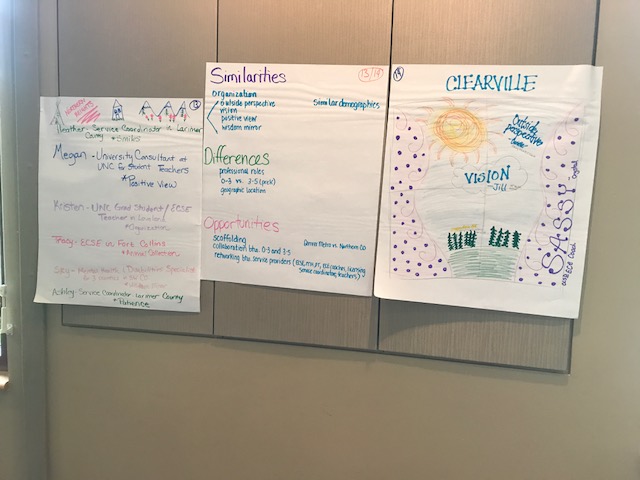 13
Heather-Service Coordinator in Larimer
County *Smiles
Megan - University Consultant at
UNC for Student Teachers
*Positive View
Kristen - UNC Grad Student / ECSE
Teacher in
*Organization
Tracy- ECSE in Fort Collins
Specialist
Ashley-Service Coordinator Larimer County
*Patience
Similarities
13/14
Organization
outside perspective
vision
positive view
wisdom mirror
Similar demographics
Differences
professional roles
0-3 vs. 3-5 (preK)
geographic location
Opportunities
scaffolding
collaboration btw. 0-3 and 3-5
networking btw. service providers
service coordinators, teachers)
Denver Metro vs. Northern Co
14
CLEARVILLE
Outside
perspective
VISION
-Jill
SASSY